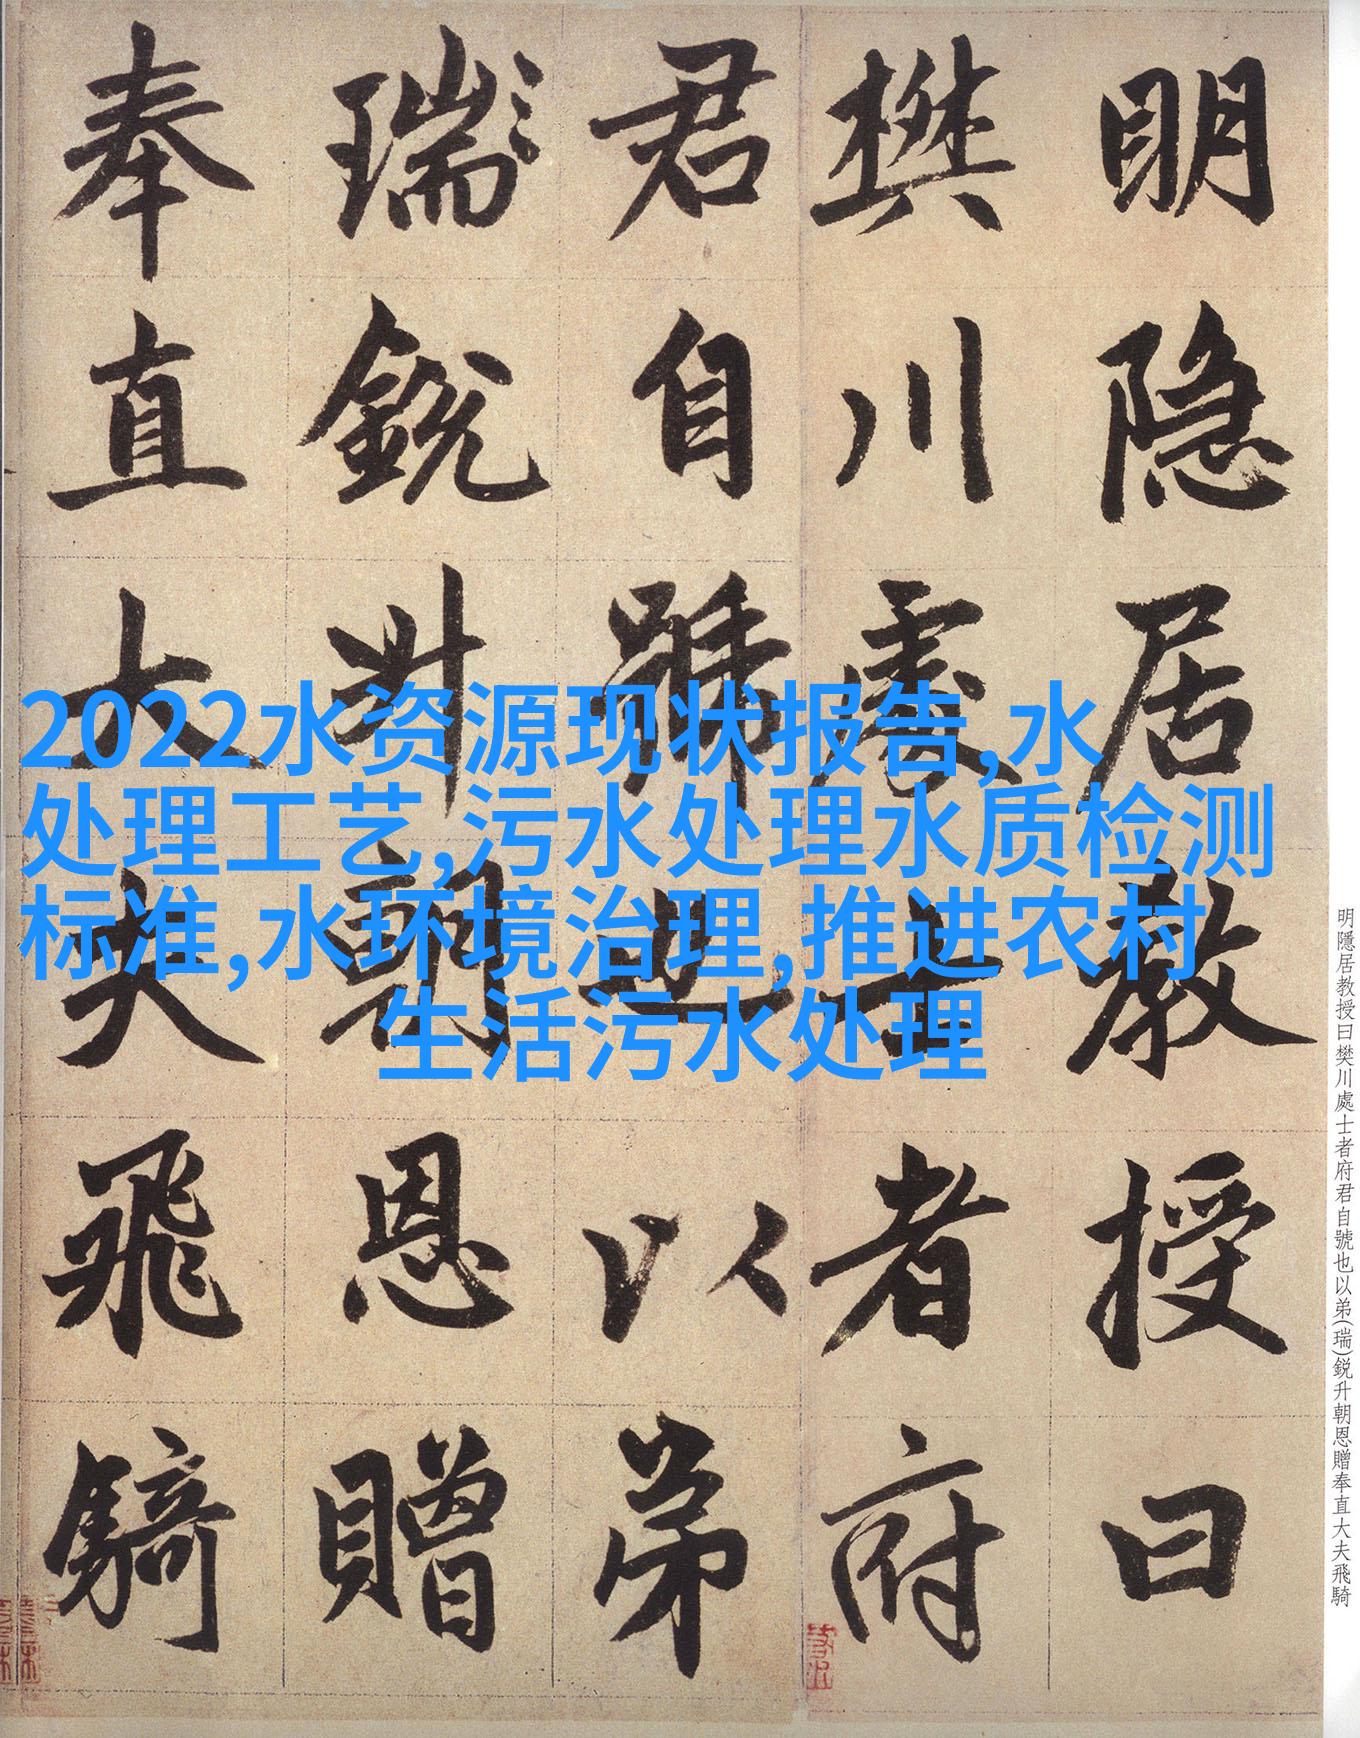 明隐居教授曰
樊川處士者府
君自號也以弟
瑞銳升朝恩贈
奉直大夫飛騎
2022水资源现状报告,水
处理工艺,污水处理水质检测
标准,水环境治理,推进农村
生活污水处理
明隱居教授曰樊川處士者府君自號也以弟(瑞)銳升朝恩贈奉直大夫飛騎